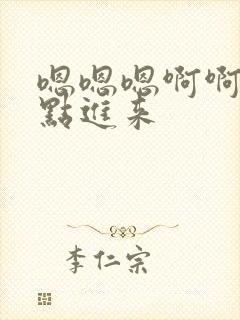 嗯嗯嗯啊啊
點進来
李仁宗